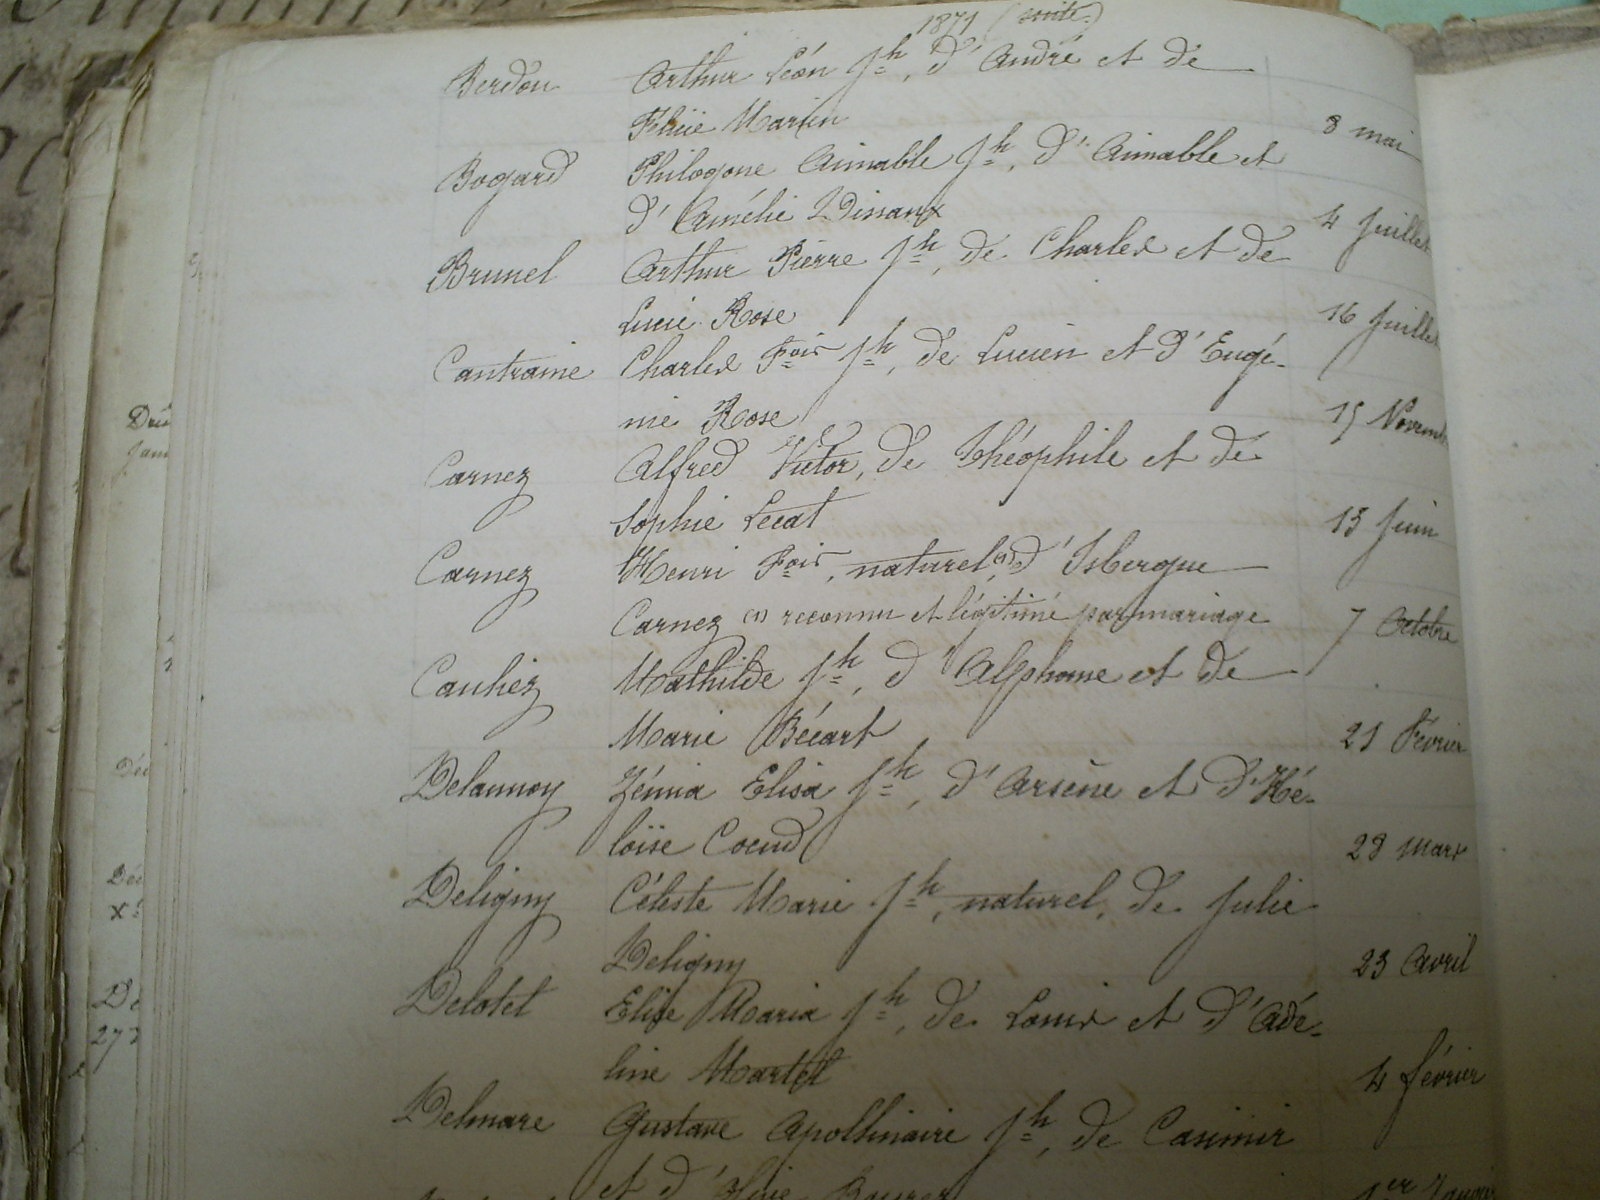 1871 (suite)
Berdou Arthur Léon Jh, d'André et de
Félicie Martin 8 mai
Bogard Philogone Aimable Jh, d'Aimable et
d'Amélie Dissaux 4 Juillet
Brunel Arthur Pierre Jh, de Charles et de
Lucie Rose 16 Juillet
Cantraine Charles Fois Jh, de Lucien et d'Eugé-
nie Rose 15 Novemb
Carnez Alfred Victor, de Théophile et de
Sophie Lecat 13 Juin
Carnez Henri Fois, naturel (1), d'Isbergue
Carnez (1) reconnu et légitimé par mariage 7 Octobre
Cauliez Mathilde Jh, d'Alphonse et de
Marie Bécart 21 Février
Delannoy Zénia Elisa Jh, d'Arsène et d'Hé-
loïse Coeud 28 Mars
Deligny Céleste Marie Jh, naturel, de Julie
Deligny 23 Avril
Delotel Elise Maria Jh, de Louis et d'Adé-
line Martel 4 février
Delmare Gustave Apollinaire Jh, de Casimir
et d'
1er